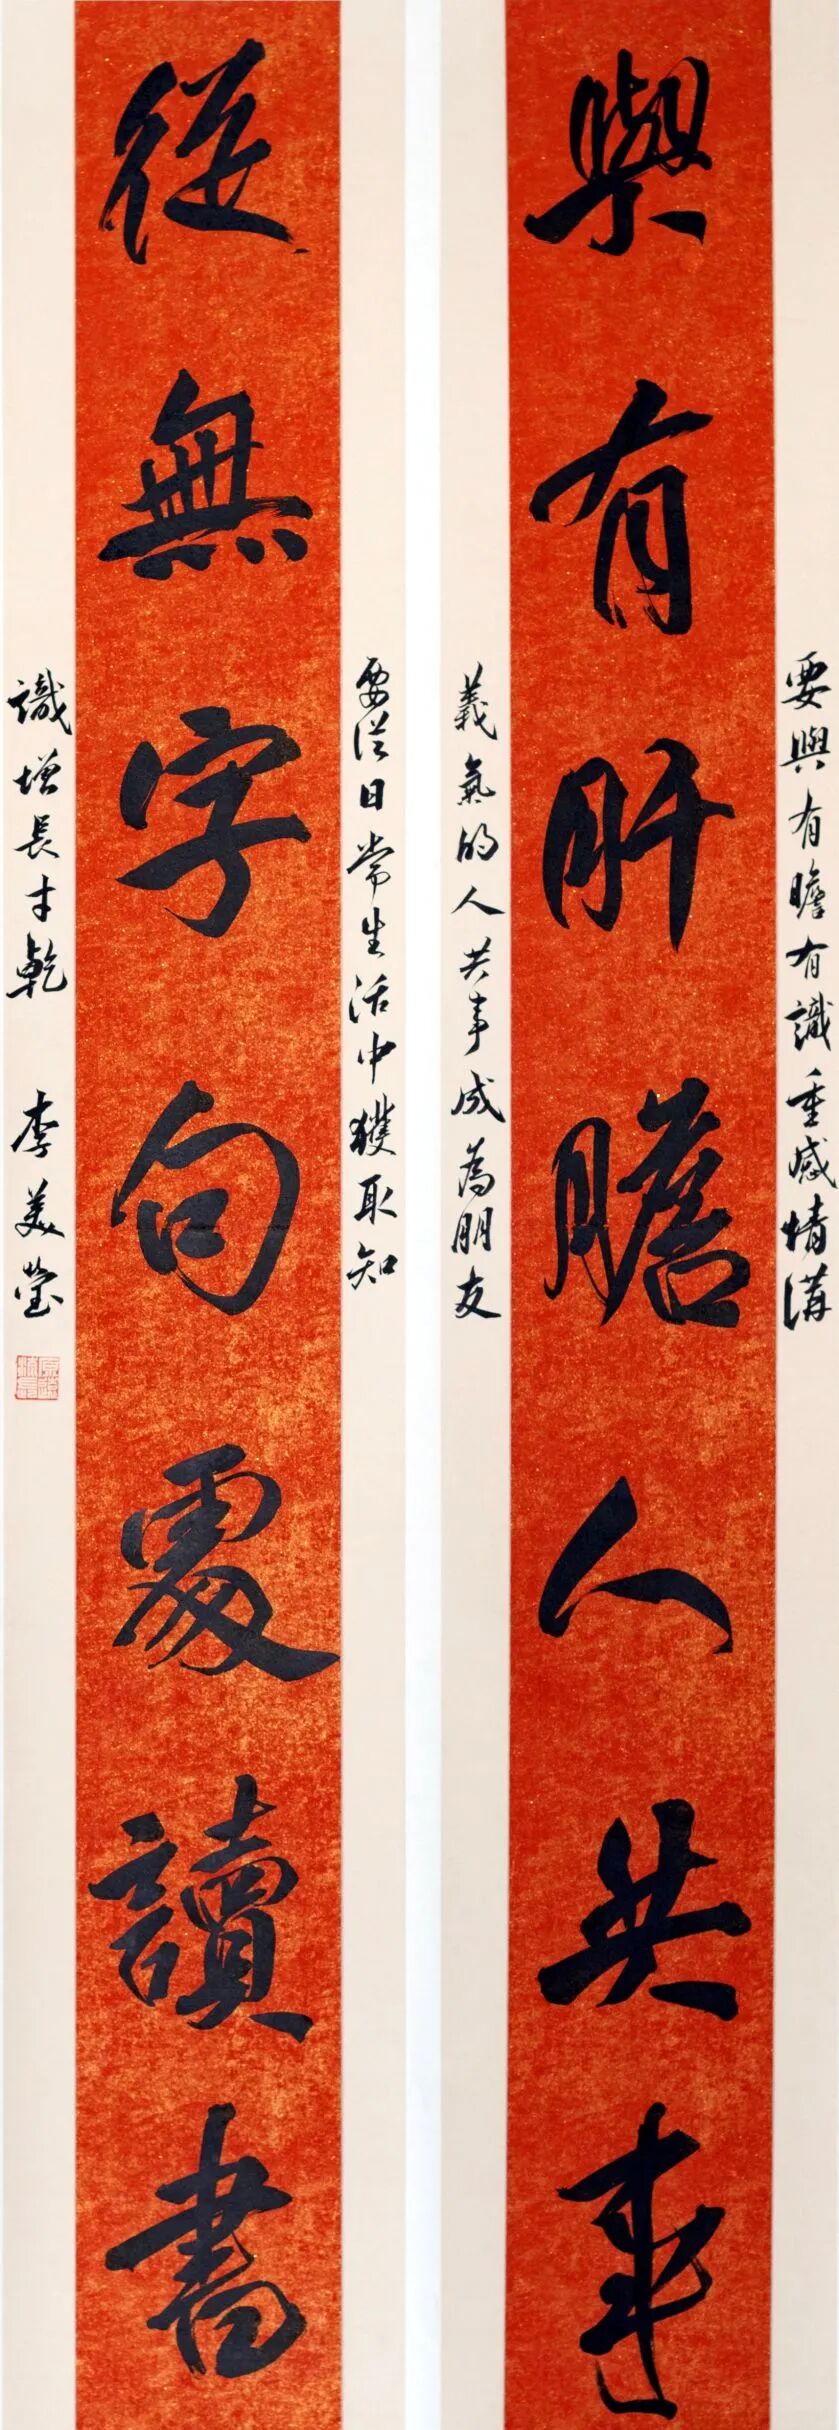 要與有膽有識重感情講
與有肝膽人共事
義氣的人共事成為朋友
要從日常生活中獲取知
從無字句處讀書
識增長才乾 李美瑩